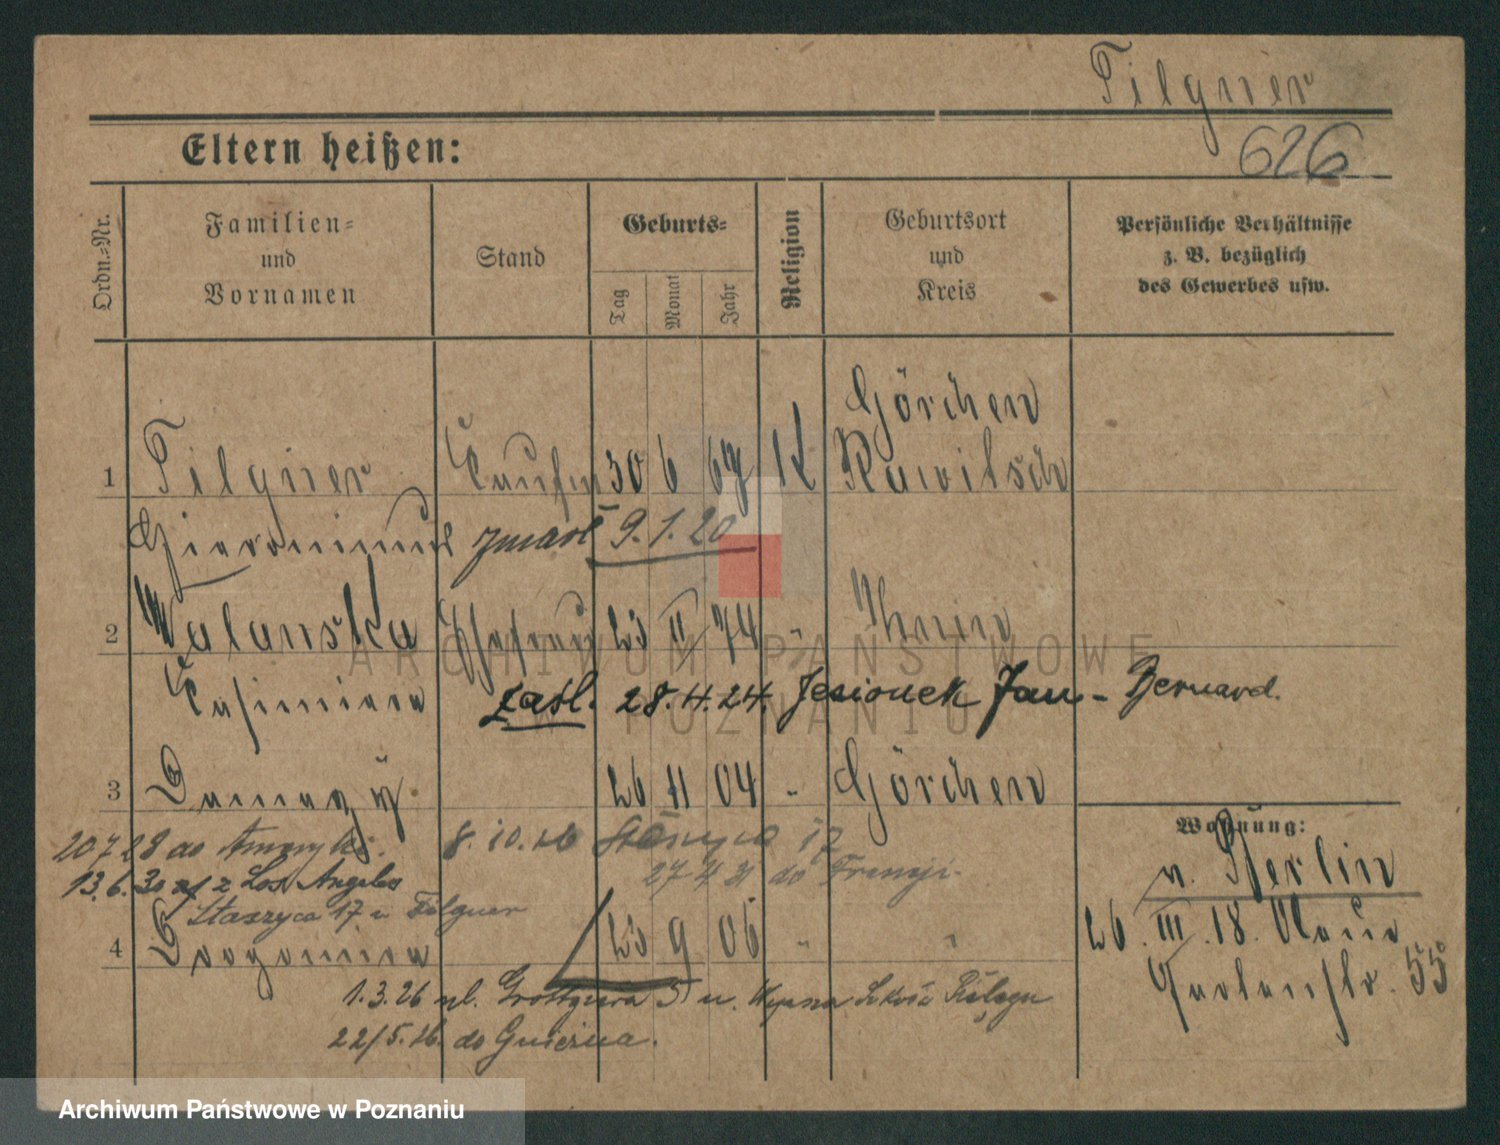 Tilgner
626
Eltern heißen:
Ordn.=Nr.
Familien=
und
Vornamen
Stand
Geburts=
Tag
Monat
Jahr
Religion
Geburtsort
und
Kreis
Persönliche Verhältnisse
z. B. bezüglich
des Gewerbes usw.
Görchen
1 Tilgner 30 6 67 K Rawitsch
zmarł 9.1.20
2 Walanska Ehefrau 23 11 74 " Thurin
Casimiera zaśl. 28.4.24. Jesionek Jan - Bernard.
3 26 11 04 " Görchen
20.7.28 do Ameryki. 8.10.26 17
Wohnung:
13.6.30 z Los Angeles 27 4 31 do Francji.
v. Berlin
Staszyca 17 u Tilgner
26.III.18.
4 Dragomira 23 9 06 " "
55
1.3.26 pl. Grottgera 5 u.
22/5.26. do Gniezna.
ARCHIWUM PAŃSTWOWE
W POZNANIU
Archiwum Państwowe w Poznaniu